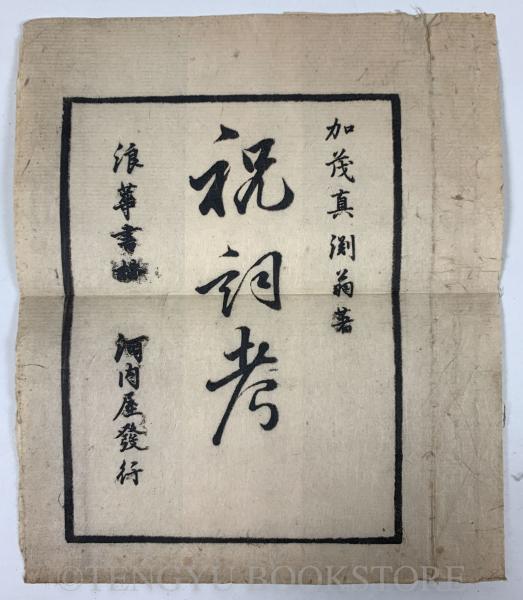 加茂真渕翁著
祝詞考
浪華書林 河内屋發行
©TENGYU BOOKSTORE